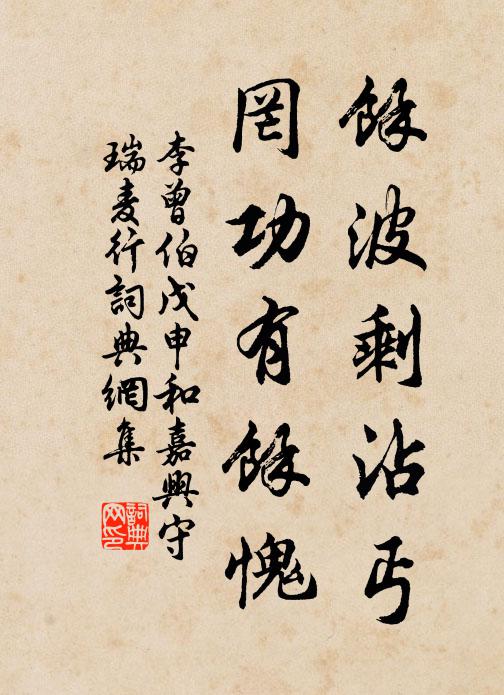 餘波剩沾丐
罔功有餘愧
李曾伯戊申和嘉興守
瑞麦行詞典網集
詞典
网印